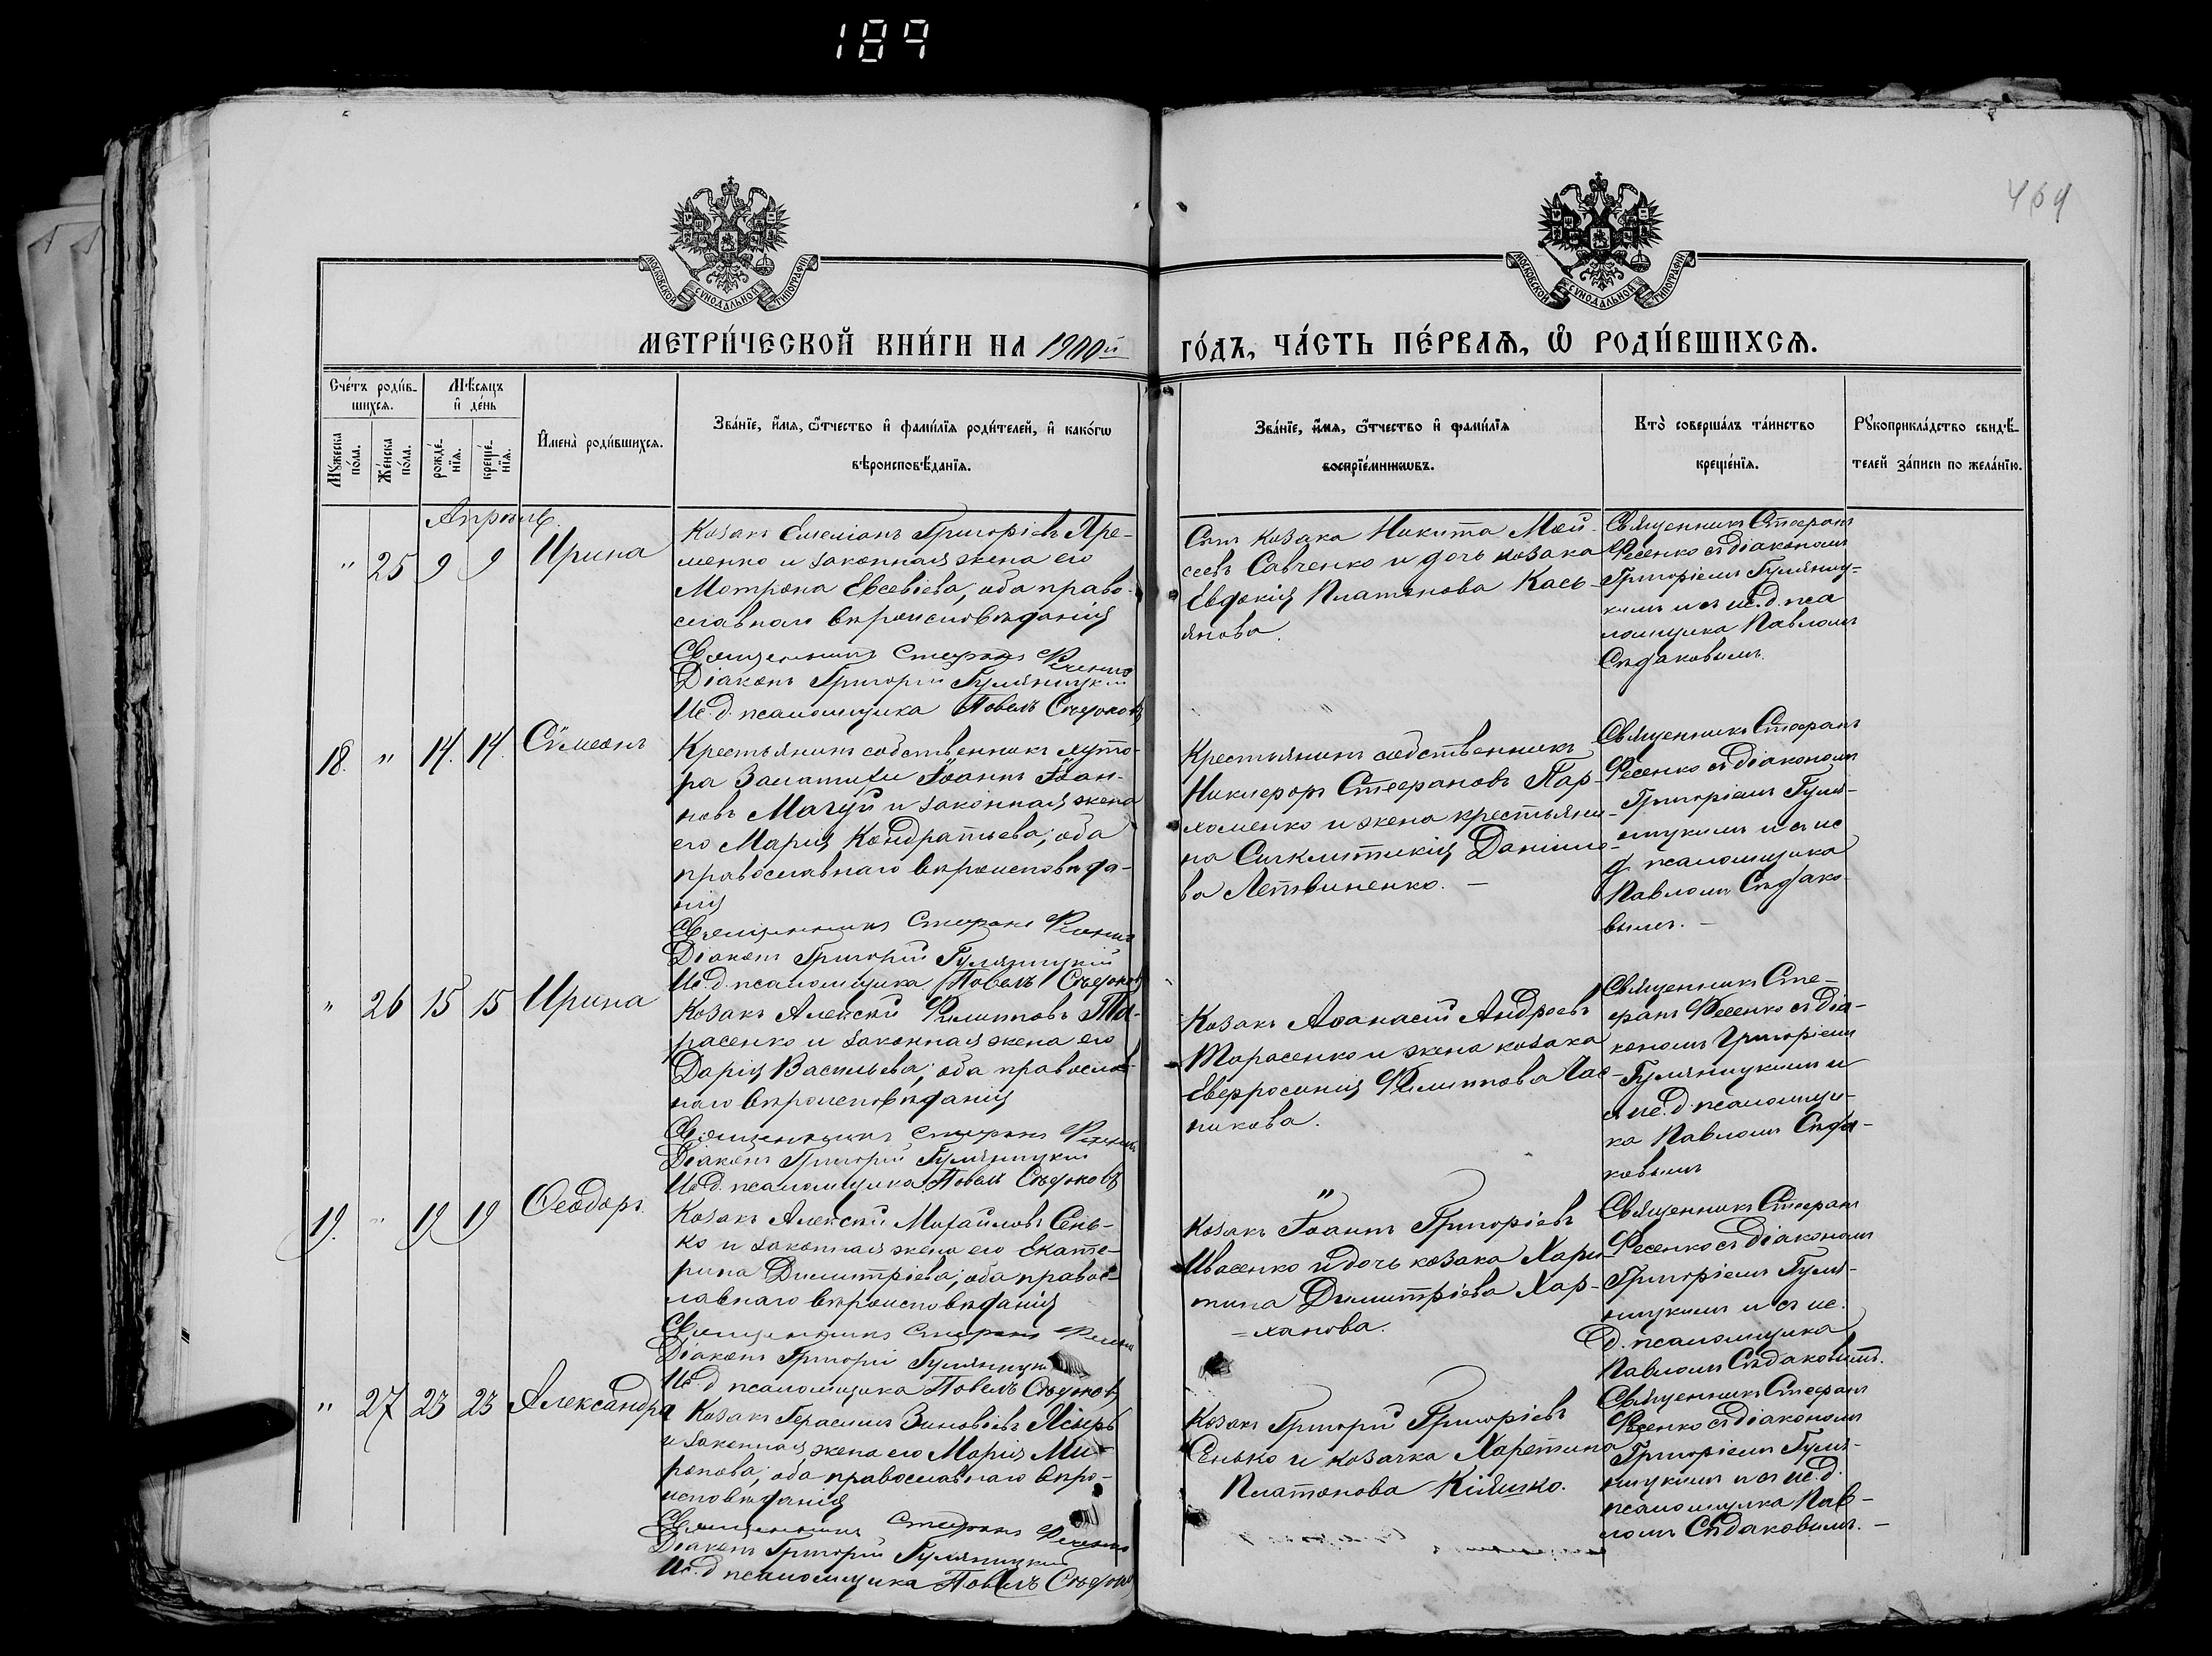 189
464
МОСКОВСКОЙ СѴНОДАЛЬНОЙ ТИПОГРАФІИ
МОСКОВСКОЙ СѴНОДАЛЬНОЙ ТИПОГРАФІИ
МЕТРИ́ЧЕСКОЙ КНИ́ГИ НА 1900й
ГО́ДЪ, ЧА́СТЬ ПЕ́РВАѦ, Ѽ РОДИ́ВШИХСѦ.
Сче́тъ роди́в-
шихсѧ.
Мꙋжеска
по́ла.
Же́нска
по́ла.
Мѣ́сѧцъ
и҆ де́нь
рожде́-
нїѧ.
креще́-
нїѧ.
И҆мена̀ роди́вшихсѧ.
Зва́нїе, и҆́мѧ, ѻ҆́тчество и҆ фами́лїѧ роди́телей, и҆ како́гѡ
вѣроисповѣ́данїѧ.
Зва́нїе, и҆́мѧ, ѻ҆́тчество и҆ фами́лїѧ
воспрїе́мникѡвъ.
Кто̀ соверша́лъ та́инство
креще́нїѧ.
Рꙋкоприкла́дство свидѣ́-
телей за́писи по жела́нїю.
Апрѣль.
" 25 9 9 Ирина
Козакъ Емеліанъ Григоріевъ Яре-
менко и законная жена его
Мотрона Евсевіева, оба право-
славнаго вѣроисповѣданія
Священникъ Стефанъ Фесенко
Діаконъ Григорій Гуляницкій
Ис. д. псаломщика Павелъ Съедаковъ
Сынъ козака Никита Мои-
сеевъ Савченко и дочь козака
Евдокія Платонова Кась-
янова.
Священникъ Стефанъ
Фесенко съ діакономъ
Григоріемъ Гуляниц-
кимъ и съ ис. д. пса
ломщика Павломъ
Сѣдаковымъ.
18. " 14. 14. Сѵмеонъ
Крестьянинъ собственникъ хуто-
ра Іоаннъ Іоан-
новъ Мачуй и законная жена
его Марія Кондратьева; оба
православнаго вѣроисповѣда-
нія
Священникъ Стефанъ Фесенко
Діаконъ Григорій Гуляницкій
Ис. д. псаломщика Павелъ Съедаковъ
Крестьянинъ собственникъ
Никифоръ Стефановъ Пар-
хоменко и жена крестьяни-
на Сигклитикія Данiило-
ва Летвиненко. —
Священникъ Стефанъ
Фесенко съ діакономъ
Григоріемъ Гуля-
ницкимъ и съ ис
д. псаломщика
Павломъ Сѣдако-
вымъ. —
" 26 15 15 Ирина
Козакъ Алексій Филипповъ Та-
расенко и законная жена его
Дарія Васильева; оба православ-
наго вѣроисповѣданія
Священникъ Стефанъ Фесенко
Діаконъ Григорій Гуляницкій
Ис. д. псаломщика Павелъ Съедаковъ
Козакъ Аѳанасій Андреевъ
Тарасенко и жена козака
Евфросинія Филиппова
никова.
Священникъ Сте-
фанъ Фесенко съ діа-
кономъ Григоріемъ
Гуляницкимъ и
съ ис. д. псаломщи-
ка Павломъ Сѣда-
ковымъ
19. " 19 19 Ѳеодоръ.
Козакъ Алексій Михайловъ Сень-
ко и законная жена его Екате-
рина Димитріева; оба правос-
лавнаго вѣроисповѣданія
Священникъ Стефанъ Фесенко
Діаконъ Григорій Гуляницкій
Ис. д. псаломщика Павелъ Съедаковъ
"
Козакъ Іоаннъ Григоріевъ
Ивасенко и дочь козака Хари-
тина Димитріева Хар-
=ханова.
Священникъ Стефанъ
Фесенко съ діакономъ
Григоріемъ Гуля-
ницкимъ и съ ис.
д. псаломщика
Павломъ Сѣдаковымъ.
" 27 23 23 Александра
Козакъ Герасимъ Зиновіевъ
и законная жена его Марія Ми-
ронова; оба православнаго вѣро-
исповѣданія
Священникъ Стефанъ Фесенко
Діаконъ Григорій Гуляницкій
Ис. д псаломщика Павелъ Съедаковъ
Козакъ Григорій Григоріевъ
Сенько и козачка Харетина
Платонова Кіяшко.
Священникъ Стефанъ
Фесенко съ діакономъ
Григоріемъ Гуля-
ницкимъ и съ ис. д.
псаломщика Пав-
ломъ Сѣдаковымъ. —